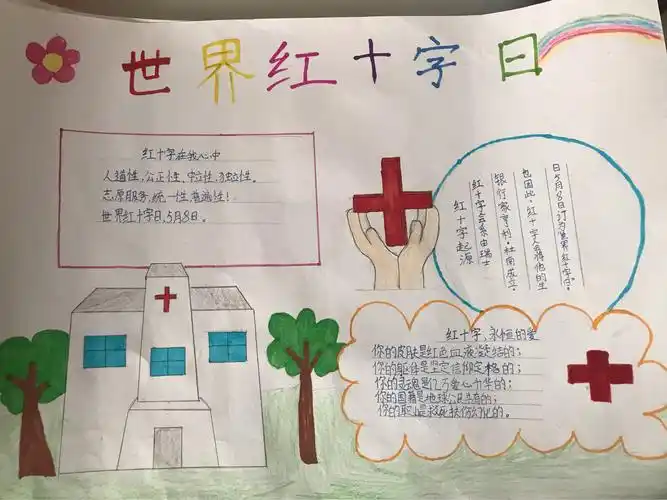 世界红十字日
红十字在我心中
人道性,公正性、中立性,独立性。
志愿服务,统一性,普遍性!
世界红十字日,5月8日。
红十字起源
红十字会系由瑞士
银行家亨利·杜南成立,
也因此,红十字人会将他的生
日5月8日订为世界红十字日。
红十字、永恒的爱
你的皮肤是红色血液凝结的;
你的躯体是坚定信仰定格的;
你的灵魂是亿万爱心升华的;
你的国籍是地球公民共有的;
你的职业是救死扶伤幻化的。